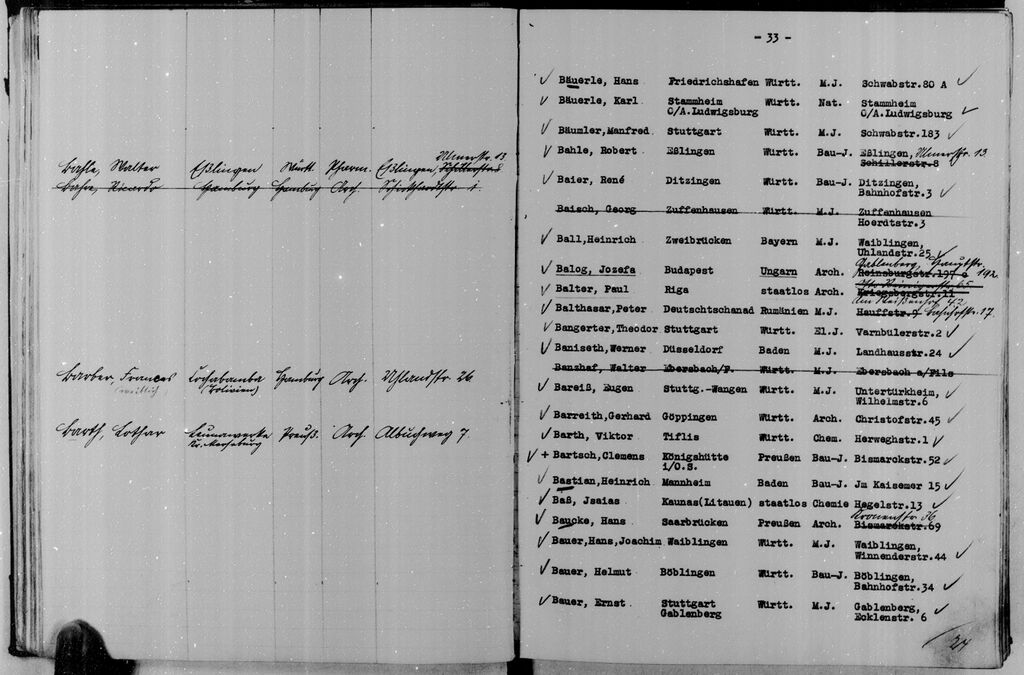 Ulmerstr. 13
Bahle, Walter Eßlingen Württ. Pharm. Eßlingen, Schillerstr. 8
Bahre, Ricardo Hamburg Hamburg Arch. Schickhardtstr. 1
Barber, Frances Cochabamba Hamburg Arch. Uhlandstr. 26
(weiblich) (Bolivien)
Barth, Lothar Leunawerke Preuß. Arch. Albuchweg 7.
Kr. Merseburg
- 33 -
Bäuerle, Hans Friedrichshafen Württ. M.J. Schwabstr.80 A
Bäuerle, Karl Stammheim Württ. Nat. Stammheim
O/A.Ludwigsburg O/A.Ludwigsburg
Bäumler,Manfred Stuttgart Württ. M.J. Schwabstr.183
Bahle, Robert Eßlingen Württ. Bau-J. Eßlingen, Ulmerstr. 13
Schillerstr.8
Baier, René Ditzingen Württ. Bau-J. Ditzingen,
Bahnhofstr.3
Baisch, Georg Zuffenhausen Württ. M.J. Zuffenhausen
Hoerdtstr.3
Ball,Heinrich Zweibrücken Bayern M.J. Waiblingen,
Uhlandstr.25
Gablenberg, Hauptstr.
Balog, Jozefa Budapest Ungarn Arch. Reinsburgstr.197 192
Balter, Paul Riga staatlos Arch. Kriegsbergstr.11
Am Weißenhof 42
Balthasar,Peter Deutschtschanad Rumänien M.J. Hauffstr. Bahnhofstr.17.
Bangerter,Theodor Stuttgart Württ. El.J. Varnbülerstr.2
Baniseth,Werner Düsseldorf Baden M.J. Landhausstr.24
Banzhaf, Walter Ebersbach/F. Württ. M.J. Ebersbach a/Fils
Bareiß, Eugen Stuttg.-Wangen Württ. M.J. Untertürkheim,
Wilhelmstr.6
Barreith,Gerhard Göppingen Württ. Arch. Christofstr.45
Barth, Viktor Tiflis Württ. Chem. Herweghstr.1
+ Bartsch,Clemens Königshütte Preußen Bau-J. Bismarckstr.52
i/O.S.
Bastian,Heinrich Mannheim Baden Bau-J. Jm Kaisemer 15
Baß, Jsaias Kaunas(Litauen) staatlos Chemie Hegelstr.13
Kronenstr. 36
Baucke, Hans Saarbrücken Preußen Arch. Bismarckstr.69
Bauer,Hans,Joachim Waiblingen Württ. M.J. Waiblingen,
Winnenderstr.44
Bauer, Helmut Böblingen Württ. Bau-J. Böblingen,
Bahnhofstr.34
Bauer, Ernst Stuttgart Württ. M.J. Gablenberg,
Gablenberg Ecklenstr. 6
24